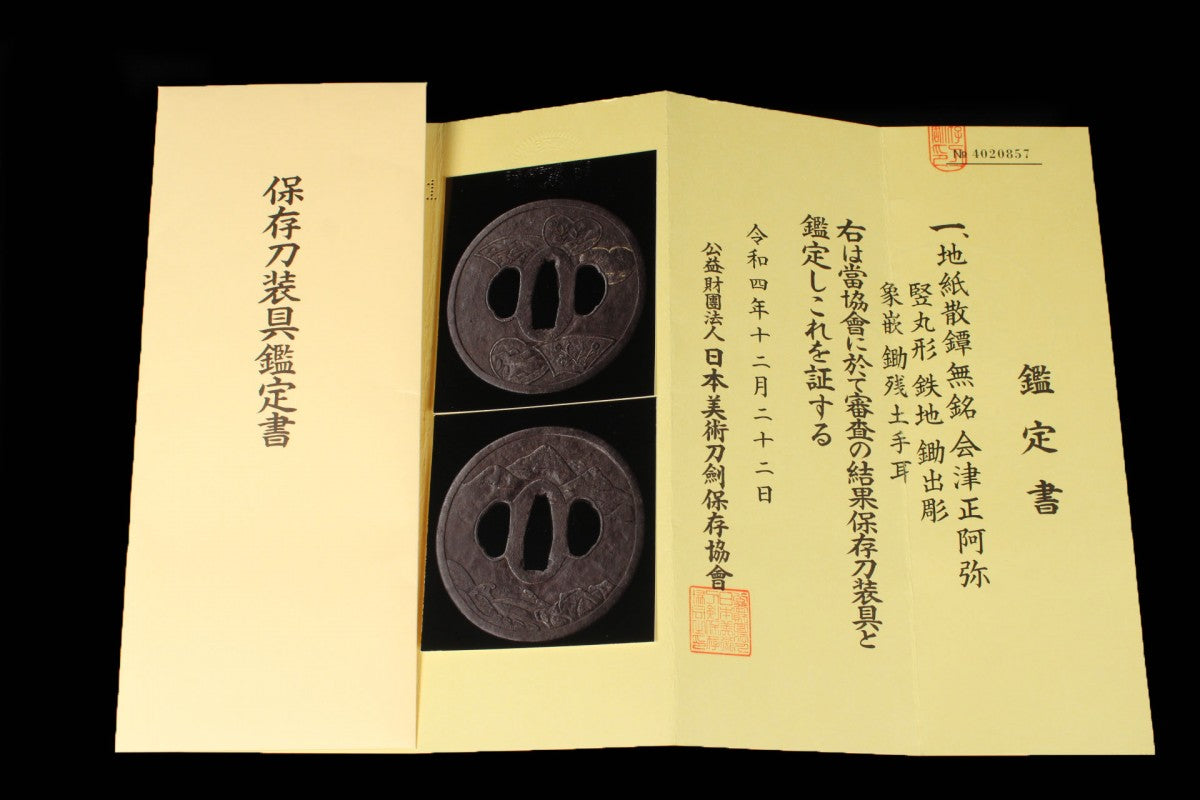 保存刀装具鑑定書
№ 4020857
鑑定書
一、地紙散鐔無銘 会津正阿弥
竪丸形 鉄地 鋤出彫
象嵌 鋤残土手耳
右は當協會に於て審査の結果保存刀装具と
鑑定しこれを証する
令和四年十二月二十二日
公益財團法人 日本美術刀劍保存協會